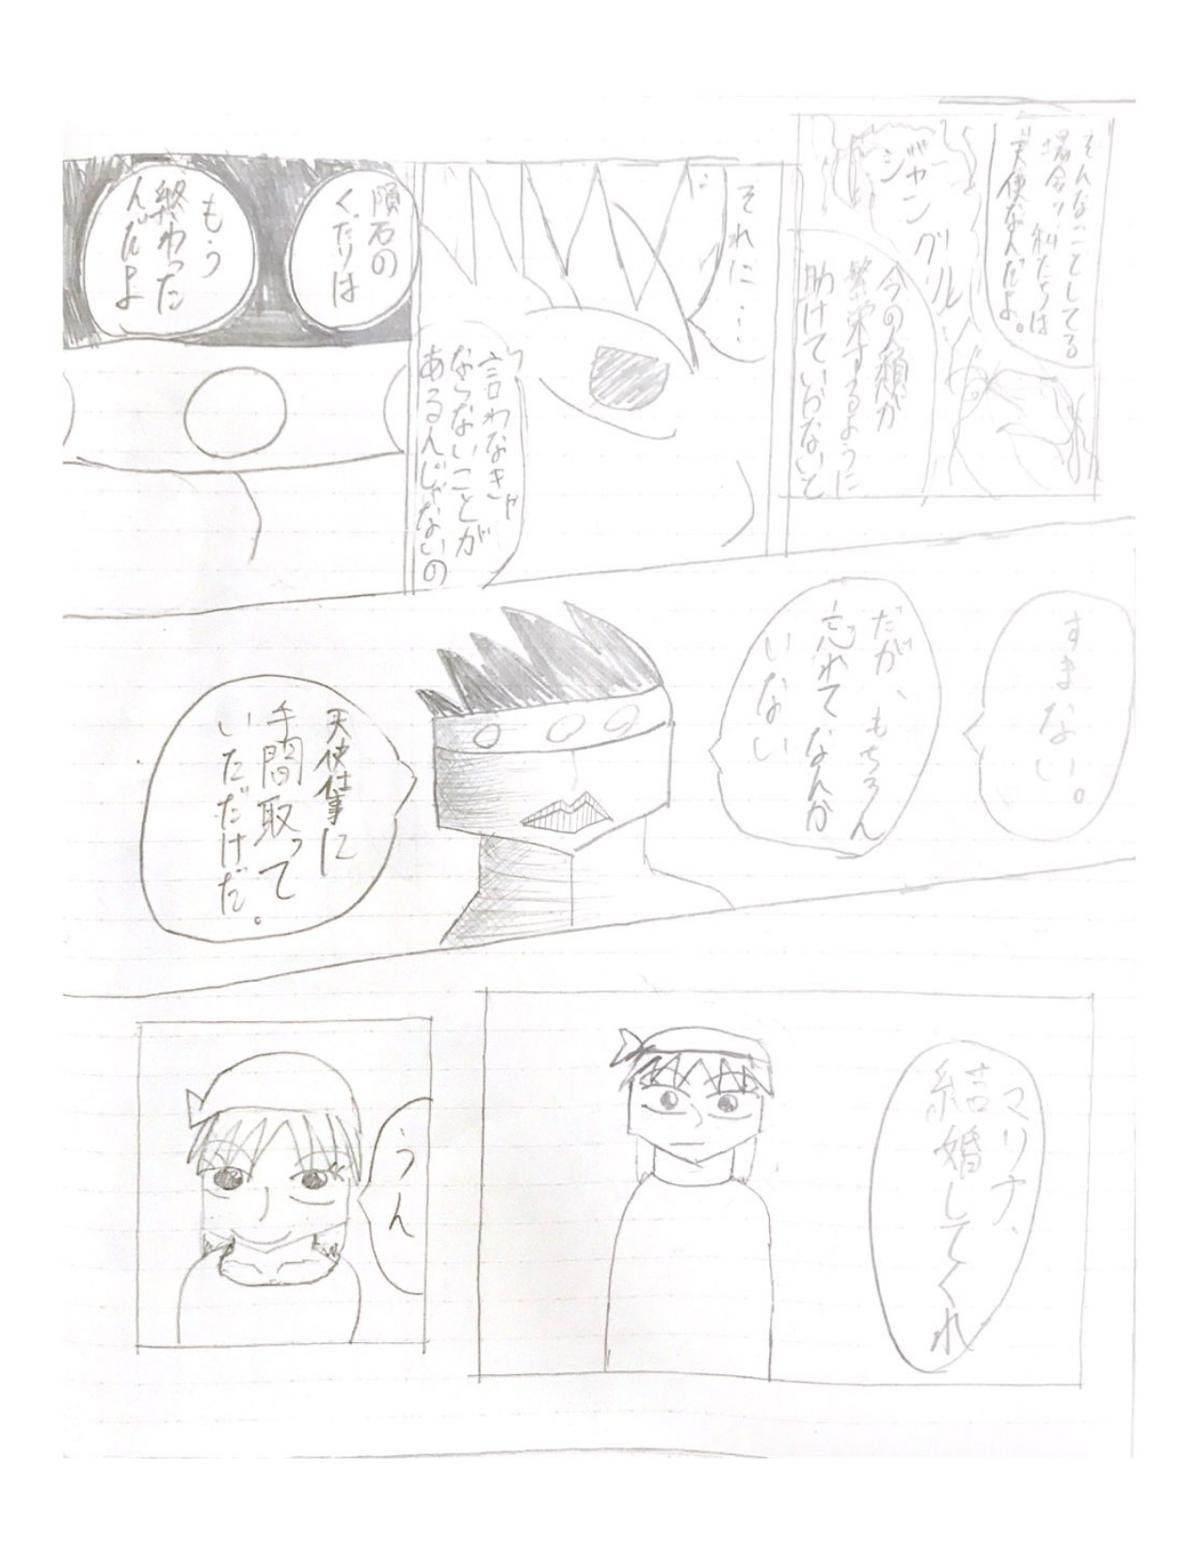 そんなことしてる
場合ッ、私たちは
天使なんだよ。
ジャングリル
今の人類が
繁栄するように
助けていかないと
それに…
言わなきゃ
ならないことが
あるんじゃないの
隕石の
くだりは
もう
終わった
んだよ
すまない。
だが、もちろん
忘れてなんか
いない
天使仕事に
手間取って
いただけだ。
マリナ、
結婚してくれ
うん